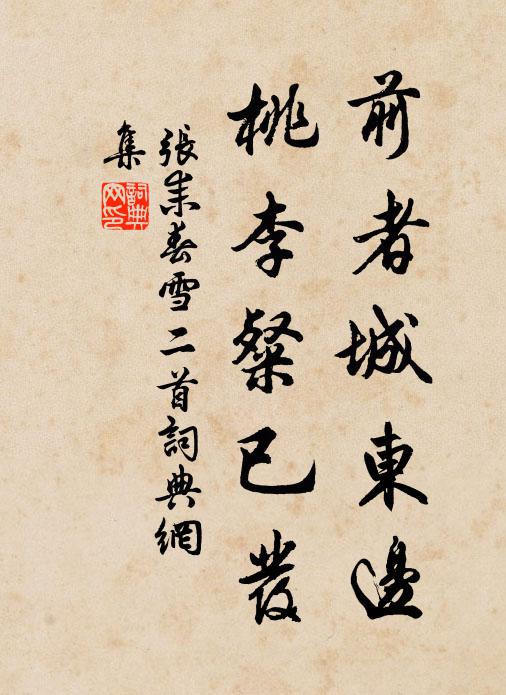 前者城東邊
桃李粲已發
張耒春雪二首詞典網
集
詞典
网印